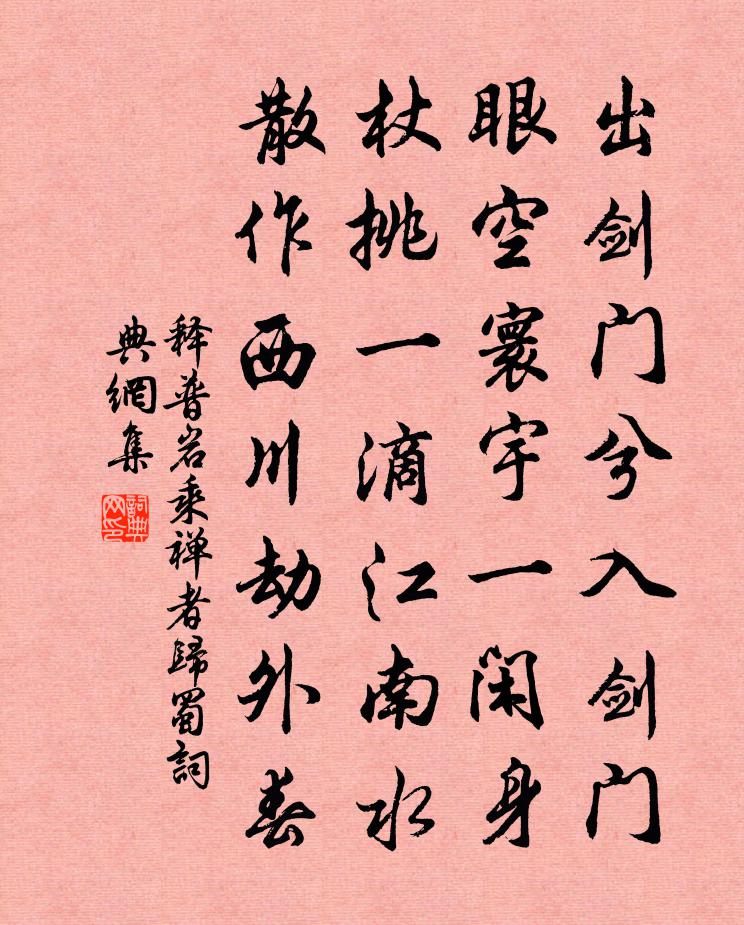 出剑门兮入剑门
眼空寰宇一闲身
杖挑一滴江南水
散作西川劫外春
释普岩乘禅者歸蜀詞
典網集
詞典
网印